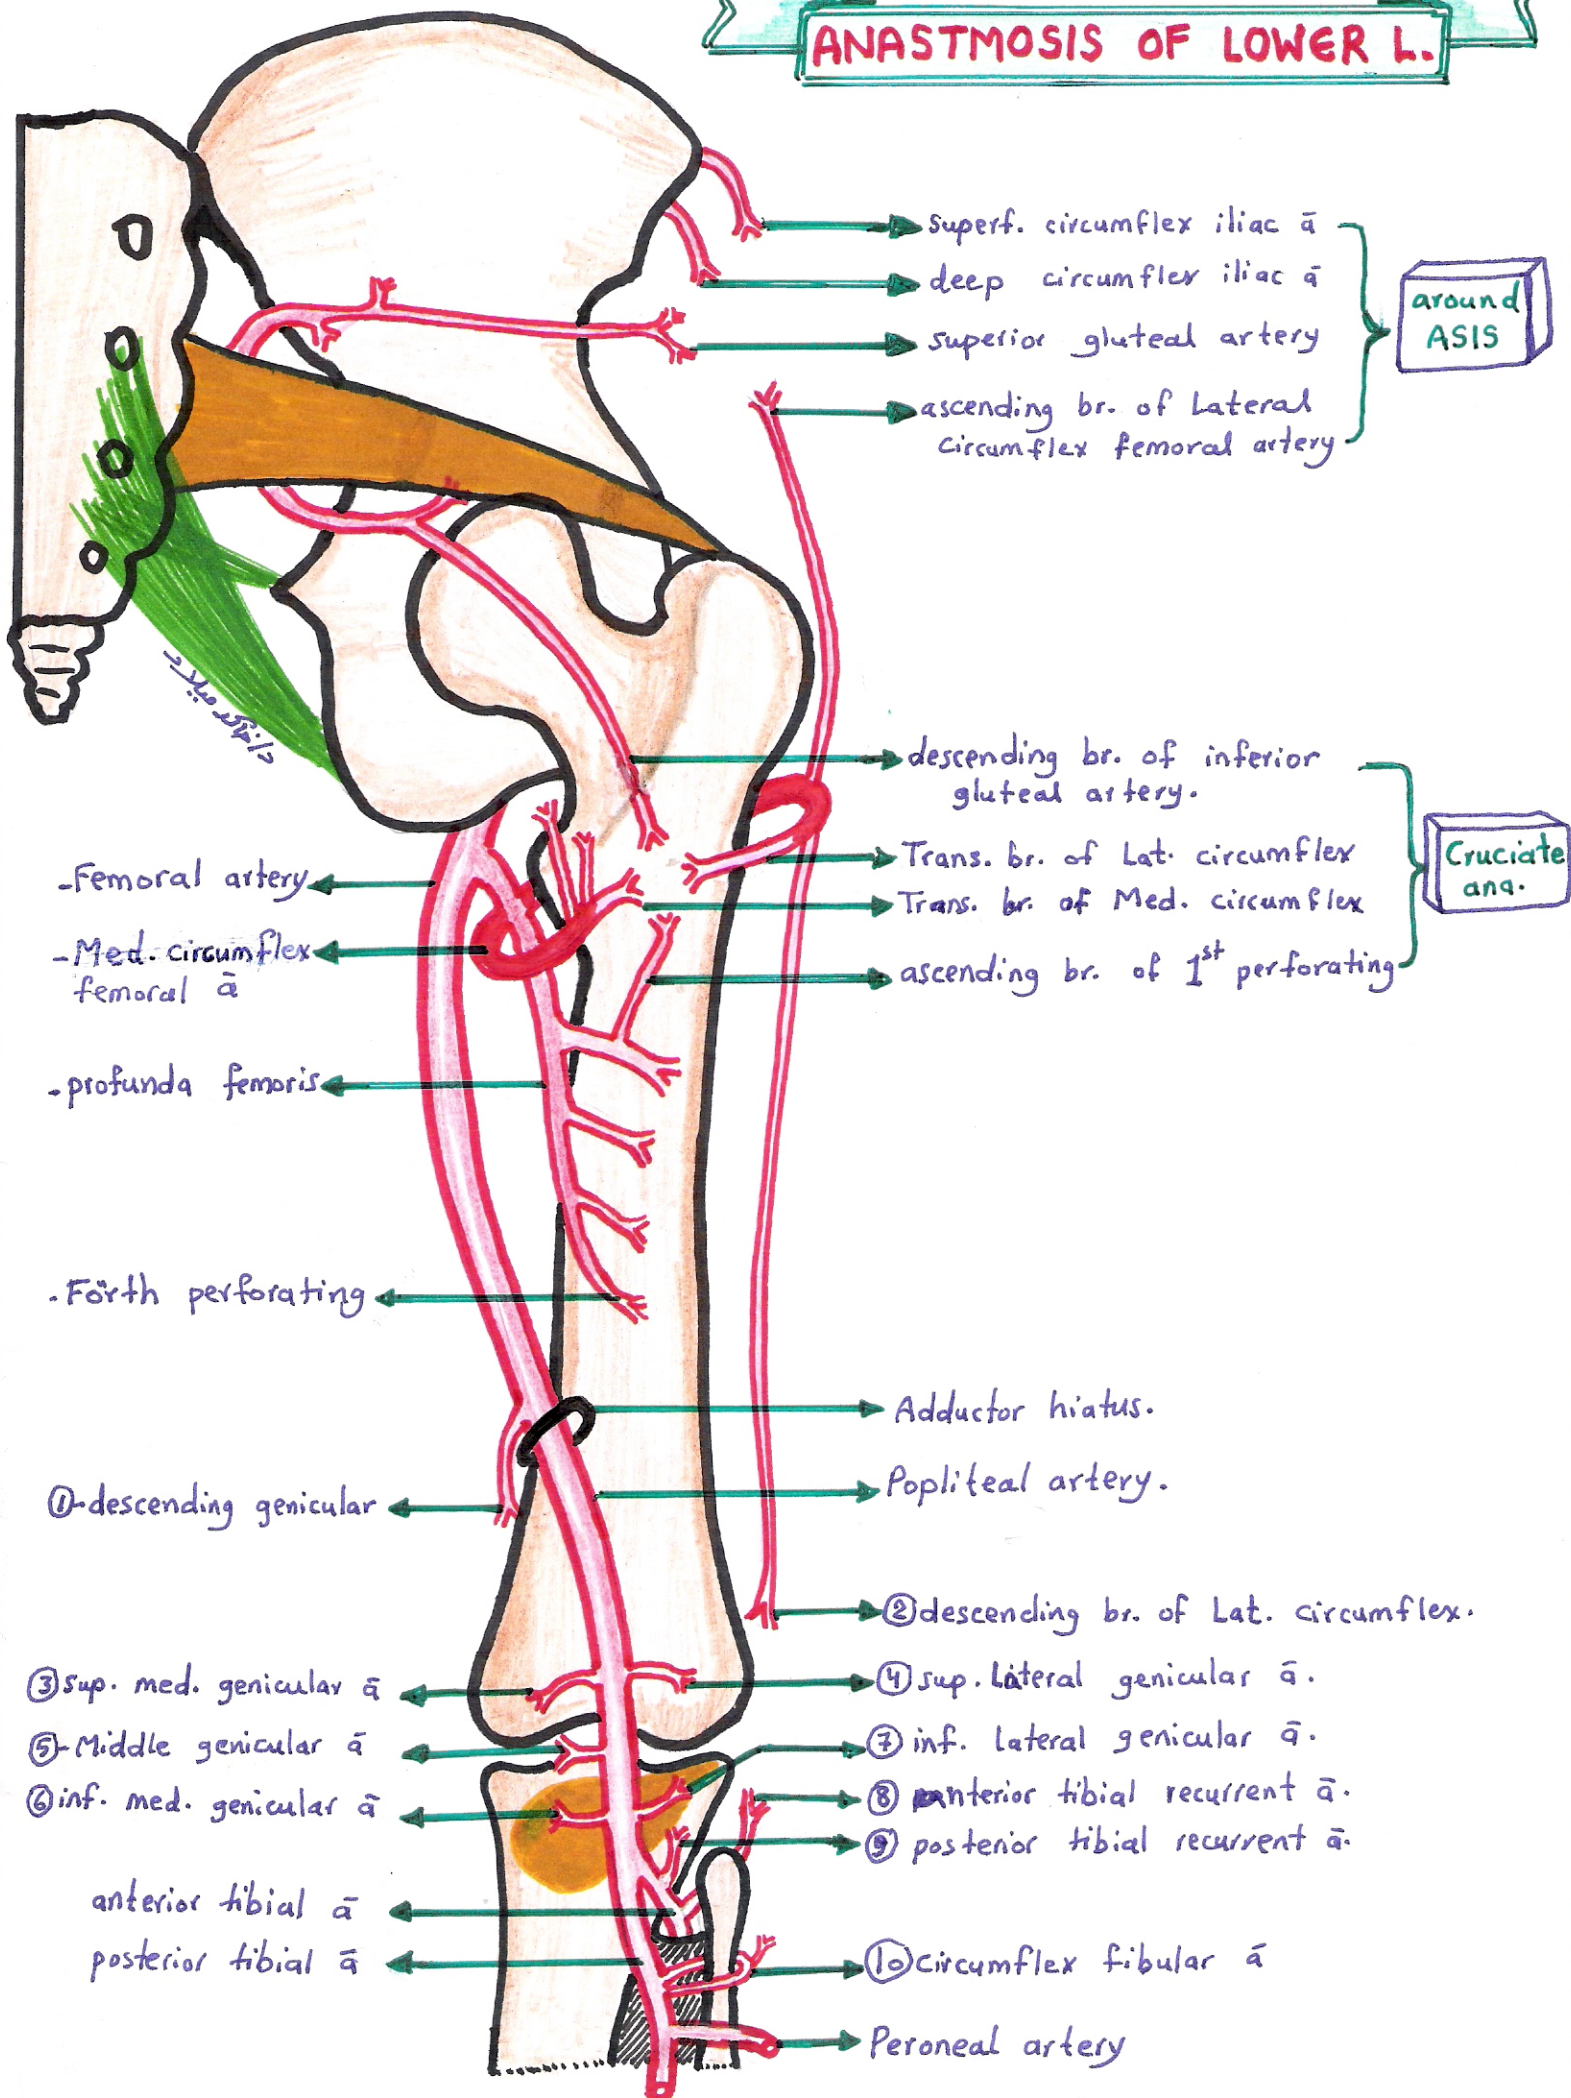 ANASTMOSIS OF LOWER L.
superf. circumflex iliac ā
deep circumflex iliac ā
superior gluteal artery
ascending br. of Lateral
circumflex femoral artery
around
ASIS
descending br. of inferior
gluteal artery.
Trans. br. of Lat. circumflex
Trans. br. of Med. circumflex
ascending br. of 1st perforating
Cruciate
ana.
-Femoral artery
-Med. circumflex
femoral ā
-profunda femoris
-Forth perforating
Adductor hiatus.
Popliteal artery.
①-descending genicular
②descending br. of Lat. circumflex.
③sup. med. genicular ā
④sup. Lateral genicular ā.
⑤-Middle genicular ā
⑦inf. Lateral genicular ā.
⑥inf. med. genicular ā
⑧anterior tibial recurrent ā.
⑨posterior tibial recurrent ā.
anterior tibial ā
posterior tibial ā
⑩circumflex fibular ā
Peroneal artery